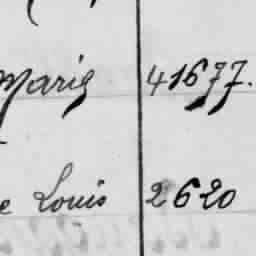 Marie 41677.
e Louis 2620